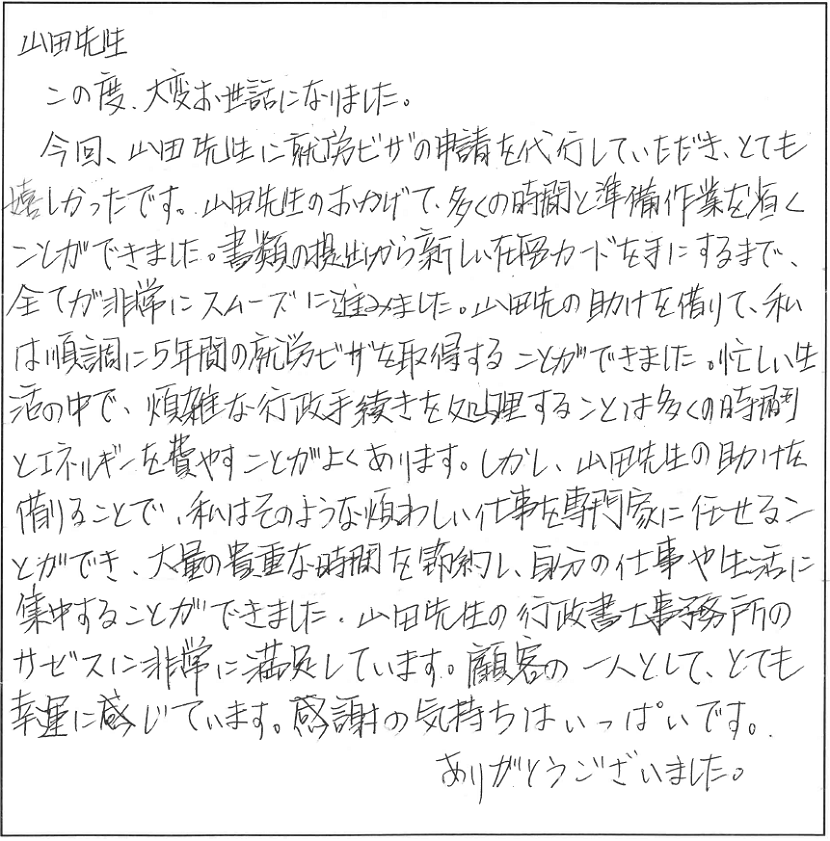 山田先生
この度、大変お世話になりました。
今回、山田先生に就労ビザの申請を代行していただき、とても
嬉しかったです。山田先生のおかげで、多くの時間と準備作業を省く
ことができました。書類の提出から新しい在留カードを手にするまで、
全てが非常にスムーズに進みました。山田先の助けを借りて、私
は順調に5年間の就労ビザを取得することができました。忙しい生
活の中で、煩雑な行政手続きを処理することは多くの時間
とエネルギーを費やすことがよくあります。しかし、山田先生の助けを
借りることで、私はそのような煩わしい仕事を専門家に任せるこ
とができ、大量の貴重な時間を節約し、自分の仕事や生活に
集中することができました。山田先生の行政書士事務所の
サービスに非常に満足しています。顧客の一人として、とても
幸運に感じています。感謝の気持ちはいっぱいです。
ありがとうございました。